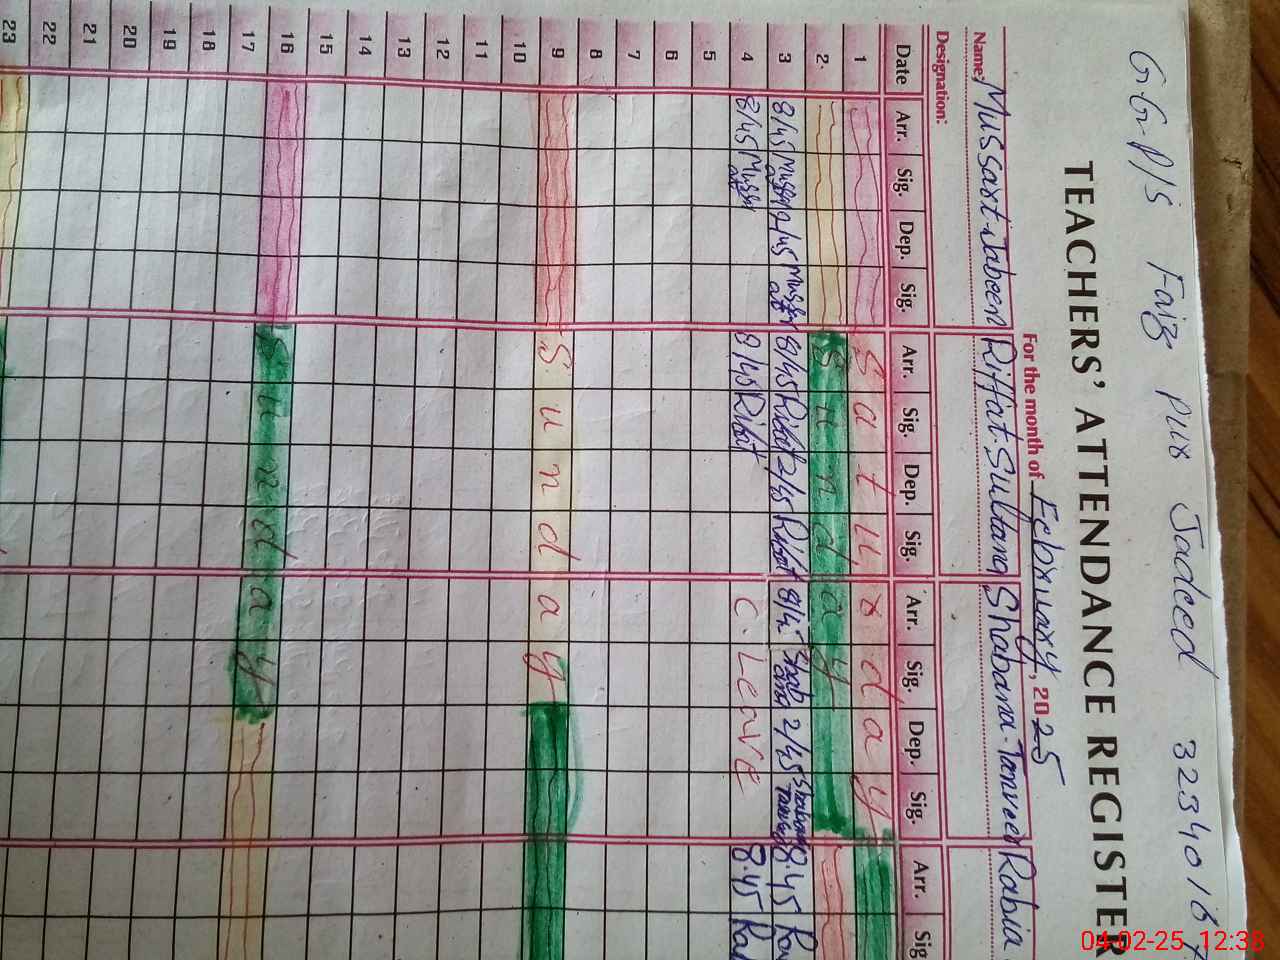 G.G.P/S Faiz Pur Jadeed 3234016
TEACHERS' ATTENDANCE REGISTER
For the month of February, 2025
Name: Mussarat Jabeen Riffat Sultana Shabana Tanveer Rabia
Designation:
Date Arr. Sig. Dep. Sig. Arr. Sig. Dep. Sig. Arr. Sig. Dep. Sig. Arr. Sig
1 Saturday
2 Sunday
3 8/45 2/45 8/45 Rifat 2/45 Rifat 8/45 Shabana 2/45 Shabana Tanveer 8.45
4 8/45 8/45 Rifat C. Leave 8.45
5
6
7
8
9 Sunday
10
11
12
13
14
15
16 Sunday
17
18
19
20
21
22
23
04-02-25 12:38